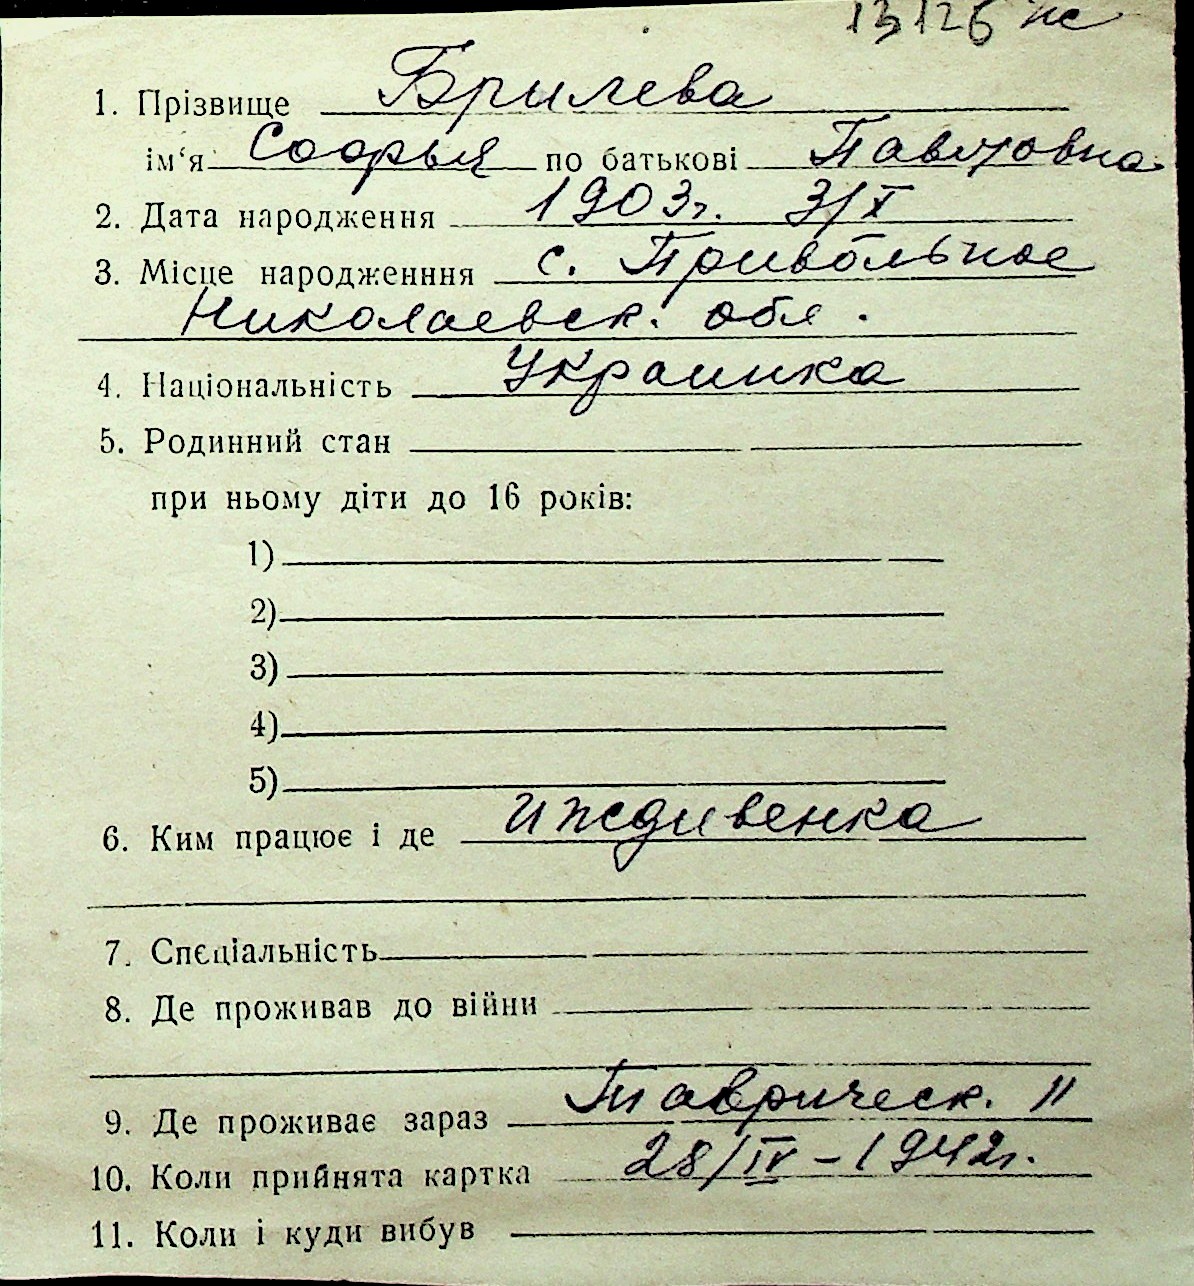 13126 нс
1. Прізвище Брилева
ім‘я Софья по батькові Павловна
2. Дата народження 1903г. 3/X
3. Місце народженння с. Привольное
Николаевск. обл.
4. Національність Украинка
5. Родинний стан
при ньому діти до 16 років:
1)
2)
3)
4)
5)
6. Ким працює і де иждивенка
7. Спєціальність
8. Де проживав до війни
9. Де проживає зараз Таврическ. 11
10. Коли прийнята картка 28/IV – 1942г.
11. Коли і куди вибув